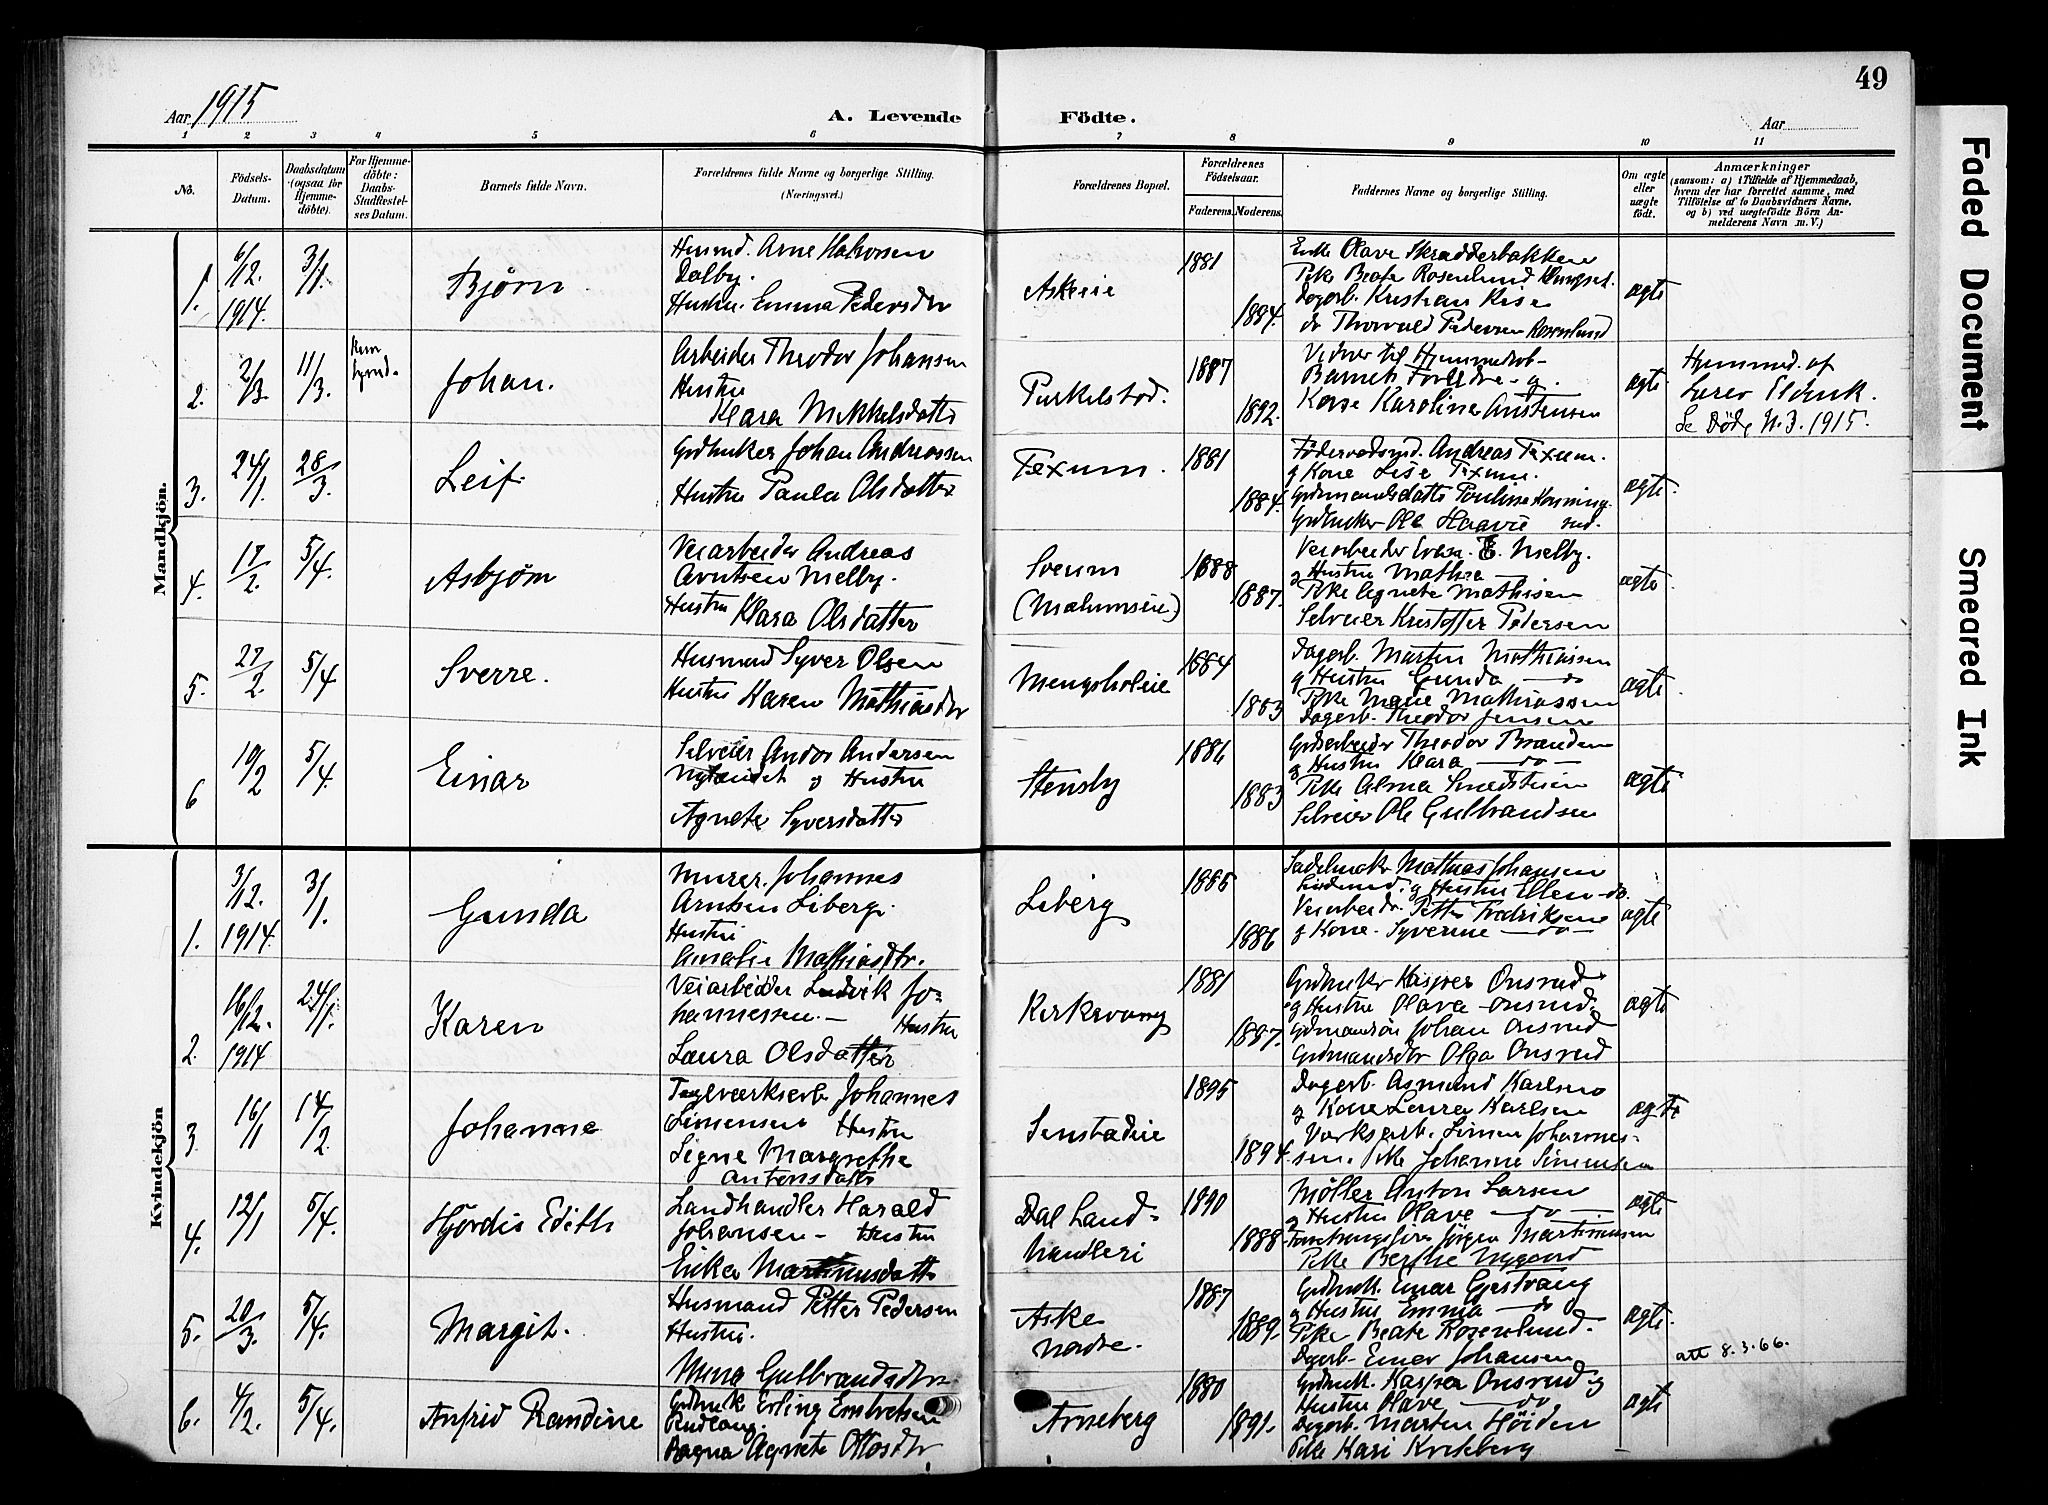 49
Aar 1915
A. Levende Födte.
Aar
1 2 3 4 5 6 7 8 9 10 11
No.
Födsels-Datum.
Daabsdatum (ogsaa for Hjemmedöbte).
For Hjemmedöbte: Daabs-Stadfæstelses Datum.
Barnets fulde Navn.
Forældrenes fulde Navne og borgerlige Stilling. (Næringsvei.)
Forældrenes Bopæl.
Forældrenes Födselsaar.
Faderens. Moderens.
Faddernes Navne og borgerlige Stilling.
Om ægte eller uægte födt.
Anmærkninger
(saasom: a) i Tilfælde af Hjemmedaab, hvem der har forrettet samme, med Tilföielse af to Daabsvidners Navne, og b) ved uægtefödte Börn Anmelderens Navn m. V.)
Mandkjön.
1. 6/12. 1914. 3/1. Bjørn.
Husmd. Arne Halvorsen
Dalby.
Hustru. Emma Pedersdtr
Askeie 1881 1884.
Enke Olave Skrædderbakken
Pike Beate Rosenlund
Dagarb. Kristian
do Thorvald Pedersen Rosenlund
ægte
2. 2/3. 11/3. Johan.
Arbeider Theodor Johansen
Hustru
Klara Mikkelsdatter
Purkelstad. 1887 1892.
Vidner til Hjemmedåb-
Barnets Forældre og
Kone Karoline Austensen
ægte
Hjemmed. af
Lærer
Se Døde N. 3. 1915.
3. 24/1. 28/3. Leif
Grdbruker Johan Andreassen
Hustru Paula Olsdatter
Texum. 1881 1884.
Födevadsmd. Andreas Texum.
og Kone Lise Texum.
Grdmandsdatter Pouline
Grdbruker Ole
ægte.
4. 17/2. 5/4. Asbjørn
Veiarbeider Andreas
Arntsen Melby.
Hustru Klara Olsdatter
Sveum
(Mælumseie) 1888 1887.
Veiarbeider E. Melby.
og Hustru Mathea
Pike Agnete Mathisen
Selveier Kristoffer Pedersen
ægte
5. 27/2. 5/4 Sverre.
Husmand Syver Olsen
Hustru Karen Mathiasdtr
Mengsholeie 1884 1883
Dagarb. Martin Mathiassen
og Hustru Gunda do
Pike Marie Mathiassen
Dagarb. Theodor Jensen
ægte
6 10/2 5/4. Einar
Selveier Andor Andersen
Nylændet og Hustru
Agnete Syversdatter
Stensby 1886 1883
Grdarbeider Theodor Brænden
og Hustru Klara do
Pike Alma
Selveier Ole Gulbrandsen
ægte
Kvindekjön
1. 3/12. 1914. 3/1. Gunda
Murer. Johannes
Arntsen Liberg.
Hustru
Amalie Mathiasdtr.
Liberg 1885 1886
Sadelmaker Mathias Johansen
og Hustru Ellen do.
Veiarbeider Petter Fredriksen
og Kone Syverine do
ægte
2. 16/12. 1914 24/1. Karen
Veiarbeider Ludvik Jo-
hannessen. Hustru
Laura Olsdatter
Kirkevang 1881 1887.
Grdbruker Kasper Onsrud
og Hustru Olave Onsrud.
Grdmandsøn Johan Onsrud
Grdmandsdtr Olga Onsrud
ægte
3. 16/1 14/2. Johanne
Teglverksarb. Johannes
Simensen Hustru
Signe Margrethe
Antonsdatter
Senstadeie 1895 1894.
Dagarb. Asmund Karlsen
og Kone Laura Karlsen
Verksarb. Simen Johannes-
sen. Pike Johanne Simensen
ægte
4. 12/1 5/4. Hjørdis Edith
Landhandler Harald
Johansen - Hustru
Erika Martinusdatter
Dal Land-
handleri 1890 1888.
Møller Anton Larsen
og Hustru Olave do.
Forretningsfører Jørgen Martinusen
Pike Berthe Nygaard
ægte
5. 20/3. 5/4. Margit.
Husmand Petter Pedersen
Hustru.
Mina Gulbrandsdtr.
Aske
nordre. 1887 1889.
Grdbruk. Einar Gjestvang
og Hustru Emma do
Pike Beate Rosenlund.
Dagarb. Einar Johansen
ægte.
att 8.3.66.
6. 4/2. 5/4. Anfrid Randine
Grdbruk Erling Embretsen
Rudlang.
Dagna Agnete Ottosdtr
Arneberg 1880 1891.
Grdbruk. Kasper Onsrud og
Hustru Olave do
Dagarb. Martin Høiden
Pike Kari Kvikberg
ægte
Faded Document
Smeared Ink